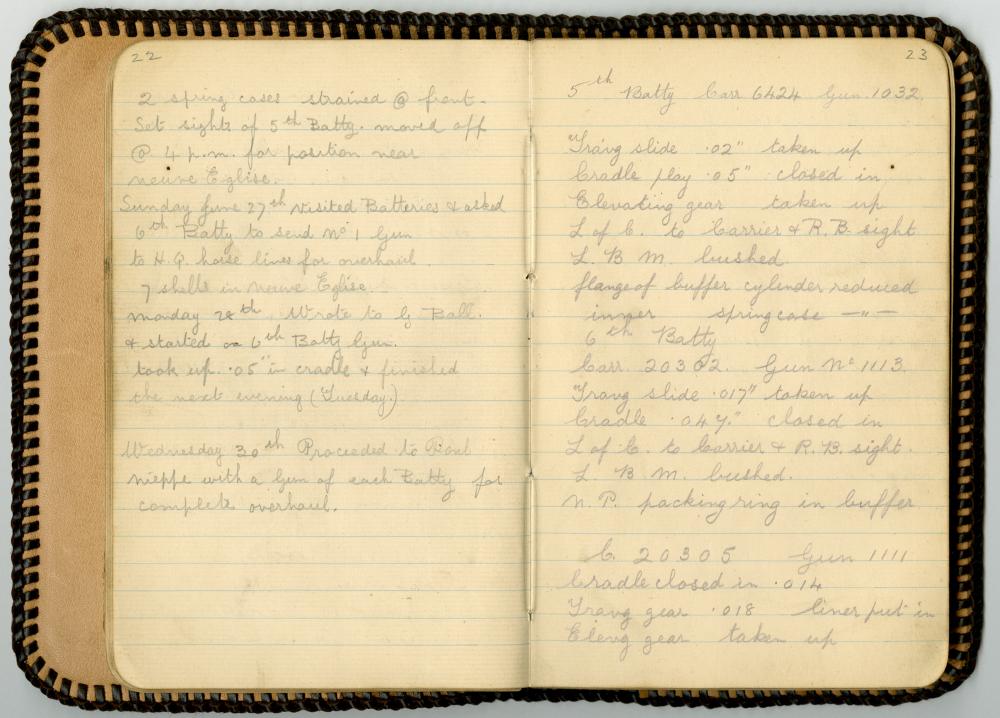 22
2 spring cases strained @ front.
Set sights of 5th Batty. moved off
@ 4 p.m. for position near
neuve Eglise.
Sunday June 27th visited Batteries & asked
6th Batty to send No 1 Gun
to H.Q. horse lines for overhaul.
7 shells in neuve Eglise.
monday 28th Wrote to G Ball.
& started on 6th Batty Gun.
took up .05" in cradle & finished
the next evening (Tuesday.)
Wednesday 30th Proceeded to Pont
nieppe with a Gun of each Batty for
complete overhaul.
23
5th Batty Carr 6424 Gun. 1032.
"Travg slide .02" taken up
Cradle play .05" closed in.
Elevating gear taken up
L of C. to Carrier & R.B. sight
L. B M. bushed.
flange of buffer cylinder reduced
inner spring case —"—
6th Batty
Carr. 20302. Gun No 1113.
"Travg slide .017" taken up
Cradle .047." closed in
L of C. to Carrier & R.B. sight.
L. B. M. bushed.
n. P. packing ring in buffer
C. 20305 Gun 1111
Cradle closed in .014
Travg gear .018 liner put in
Elevg gear taken up